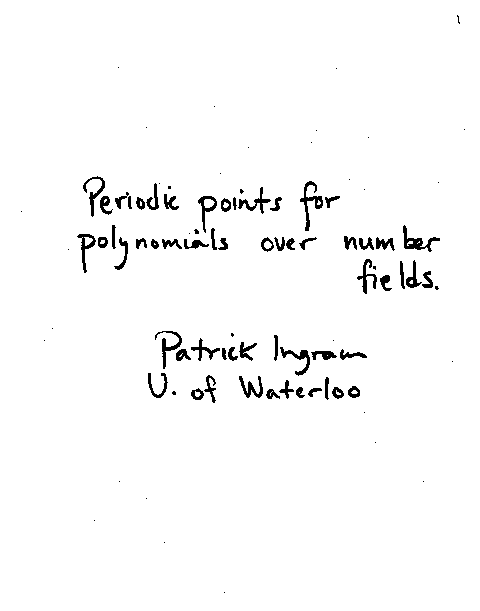 1
Periodic points for
polynomials over number
fields.
Patrick Ingram
U. of Waterloo